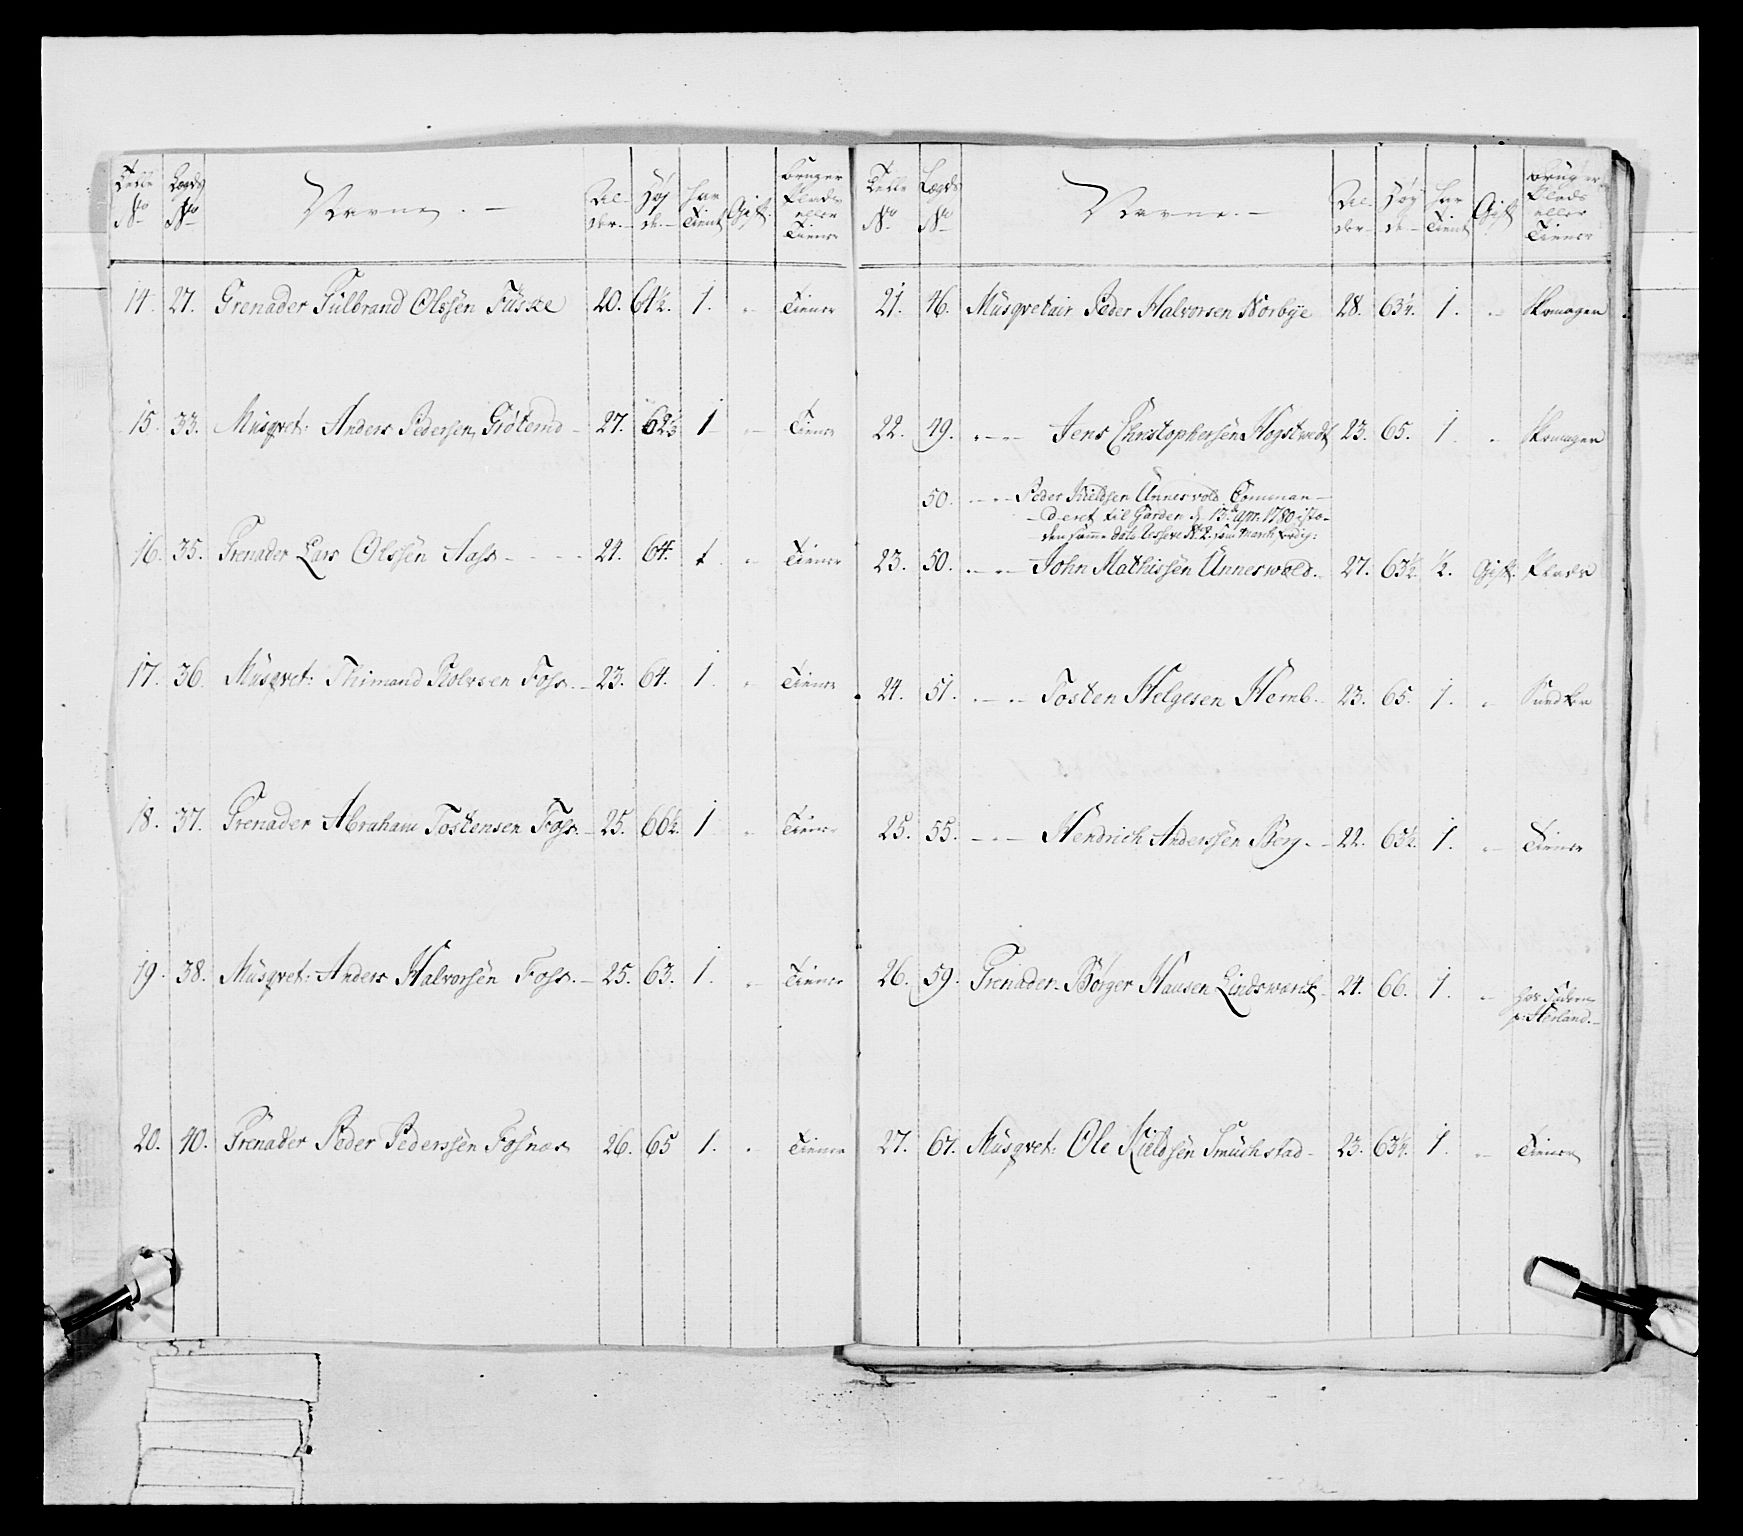 Tælle No Lægds No Navne. Al- der. Høy de. har Tient Gift. bruger Plads eller Tiener
14. 27. Grenader Gulbrand Olssen Fuske 20. 64½. 1. " Tiener
15. 33. Musqvet: Anders Pedersen 27. 62½ 1 " Tiener
16. 35. Grenader Lars Olssen Aass 24. 64. 1. " Tiener
17. 36. Musqvet: Thimand Rolvsen Foss. 23. 64. 1. " Tiener
18. 37. Grenader Abraham Tostensen Foss. 25. 66½. 1 " Tiener
19. 38. Musqvet: Anders Halvorsen Foss. 25. 63. 1. " Tiener
20. 40. Grenader Peder Pederssen Fosnæs 26. 65 1. " Tiener
Tælle No Lægds No Navne. Al- der. Høy de. har Tient Gift bruger Plads eller Tiener
21. 46. Musqvetair Peder Halvorsen Norbye 28. 63¼. 1. " Skomager
22. 49. " Jens Christophersen Hogstvedt 23. 65. 1. " Skomager
50. " Peder Kieldsen Unnerwold Comman-
deret til Garden d. 13de apr. 1780 iste-
den samme dato
23. 50. " John Mathissen Unnerwold. 27. 63½. ½. Gift. Plads
24. 51. " Tosten Helgesen Hemb. 23. 65. 1. "
25. 55. " Hendrich Anderssen Berg. 22. 63½. 1. " Tiener
26. 59. Grenader Børger Hansen 24. 66. 1. " hos Faderen
p: Hørland.
27. 67. Musqvet: Ole Kieldsen Smuchstad 23. 63¼. 1. " Tiener